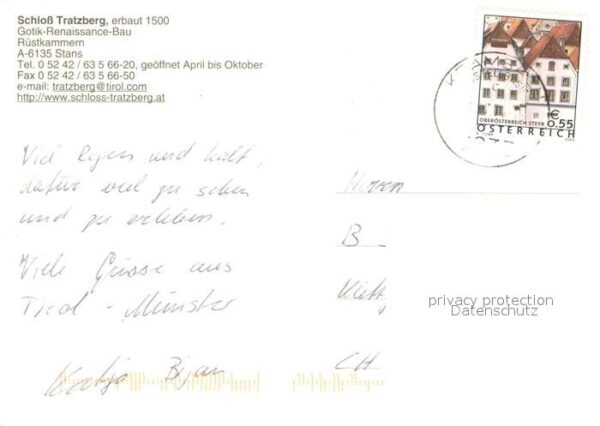 Schloß Tratzberg, erbaut 1500
Gotik-Renaissance-Bau
Rüstkammern
A-6135 Stans
Tel. 0 52 42 / 63 5 66-20, geöffnet April bis Oktober
Fax 0 52 42 / 63 5 66-50
e-mail: tratzberg@tirol.com
http://www.schloss-tratzberg.at
OBERÖSTERREICH STEYR
€ 0.55
ÖSTERREICH
Viel Regen und kalt,
dafür viel zu sehen
und zu erleben.
Viele Grüsse aus
Tirol - Münster
Katja Bijan
Herrn
B
CH
privacy protection
Datenschutz